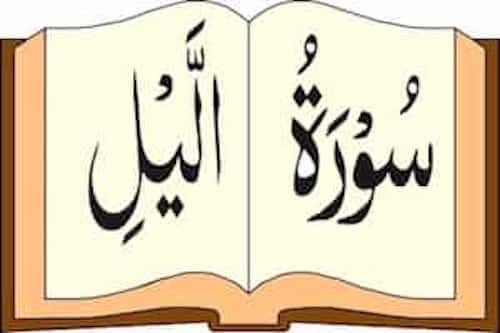 سُوْرَةُ الَّيْلِ